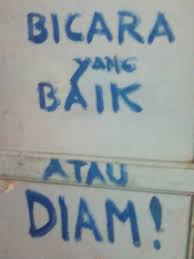 BICARA
YANG
BAIK
ATAU
DIAM!